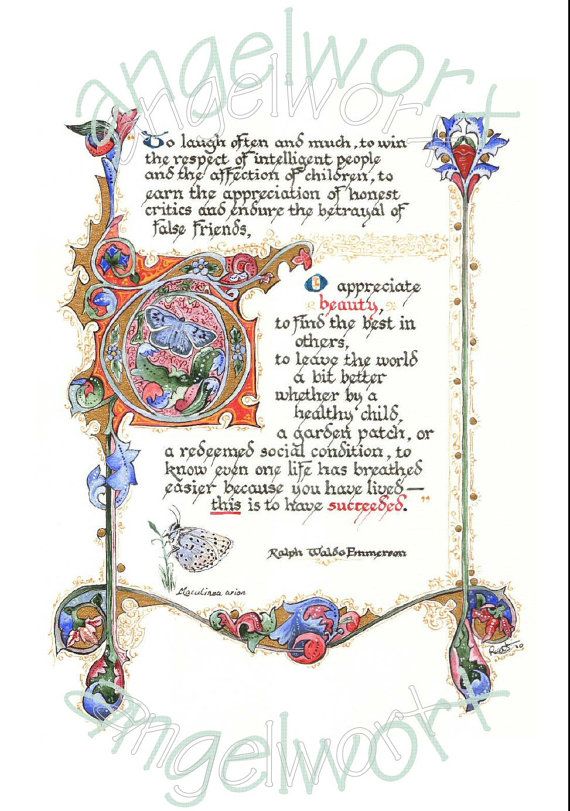 angelwort
angelwort
"To laugh often and much, to win
the respect of intelligent people
and the affection of children, to
earn the appreciation of honest
critics and endure the betrayal of
false friends,
To appreciate
beauty,
to find the best in
others,
to leave the world
a bit better
whether by a
healthy child,
a garden patch, or
a redeemed social condition, to
know even one life has breathed
easier because you have lived —
this is to have succeeded."
Ralph Waldo Emmerson
Maculinea arion
angelwort
angelwort